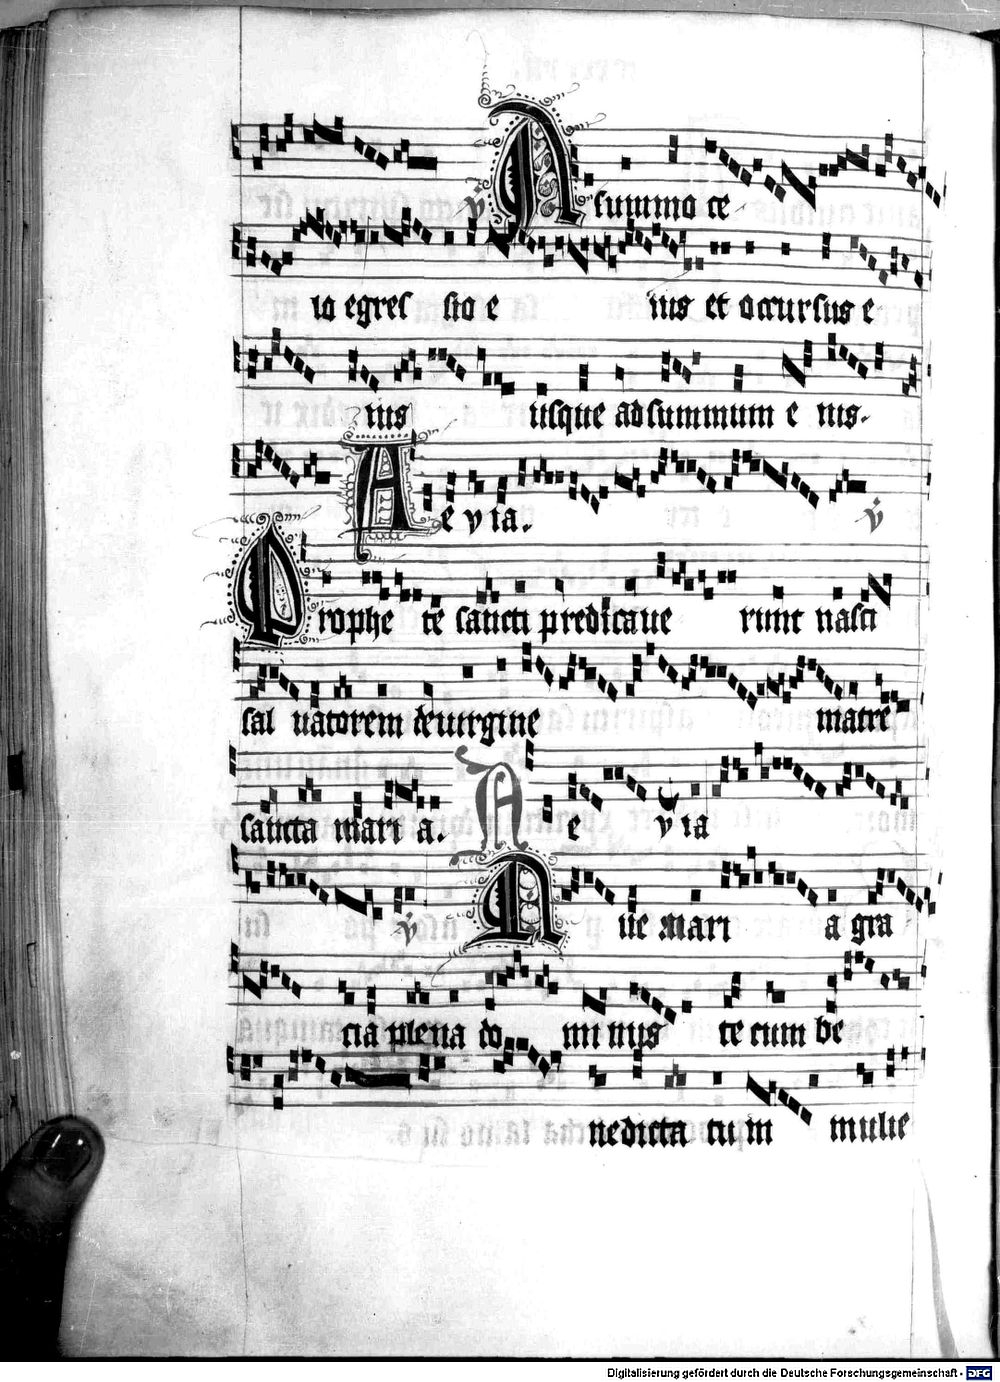 v̇ A summo ce
lo egres sio e ius et occursus e
ius usque ad summum e ius.
A e v ia. v̇
Prophe te sancti predicaue runt nasci
sal uatorem de uirgine matre
sancta mari a. A e v ia
v̇ Aue mari a gra
cia plena do minus te cum be
nedicta tu in mulie
Digitalisierung gefördert durch die Deutsche Forschungsgemeinschaft - DFG